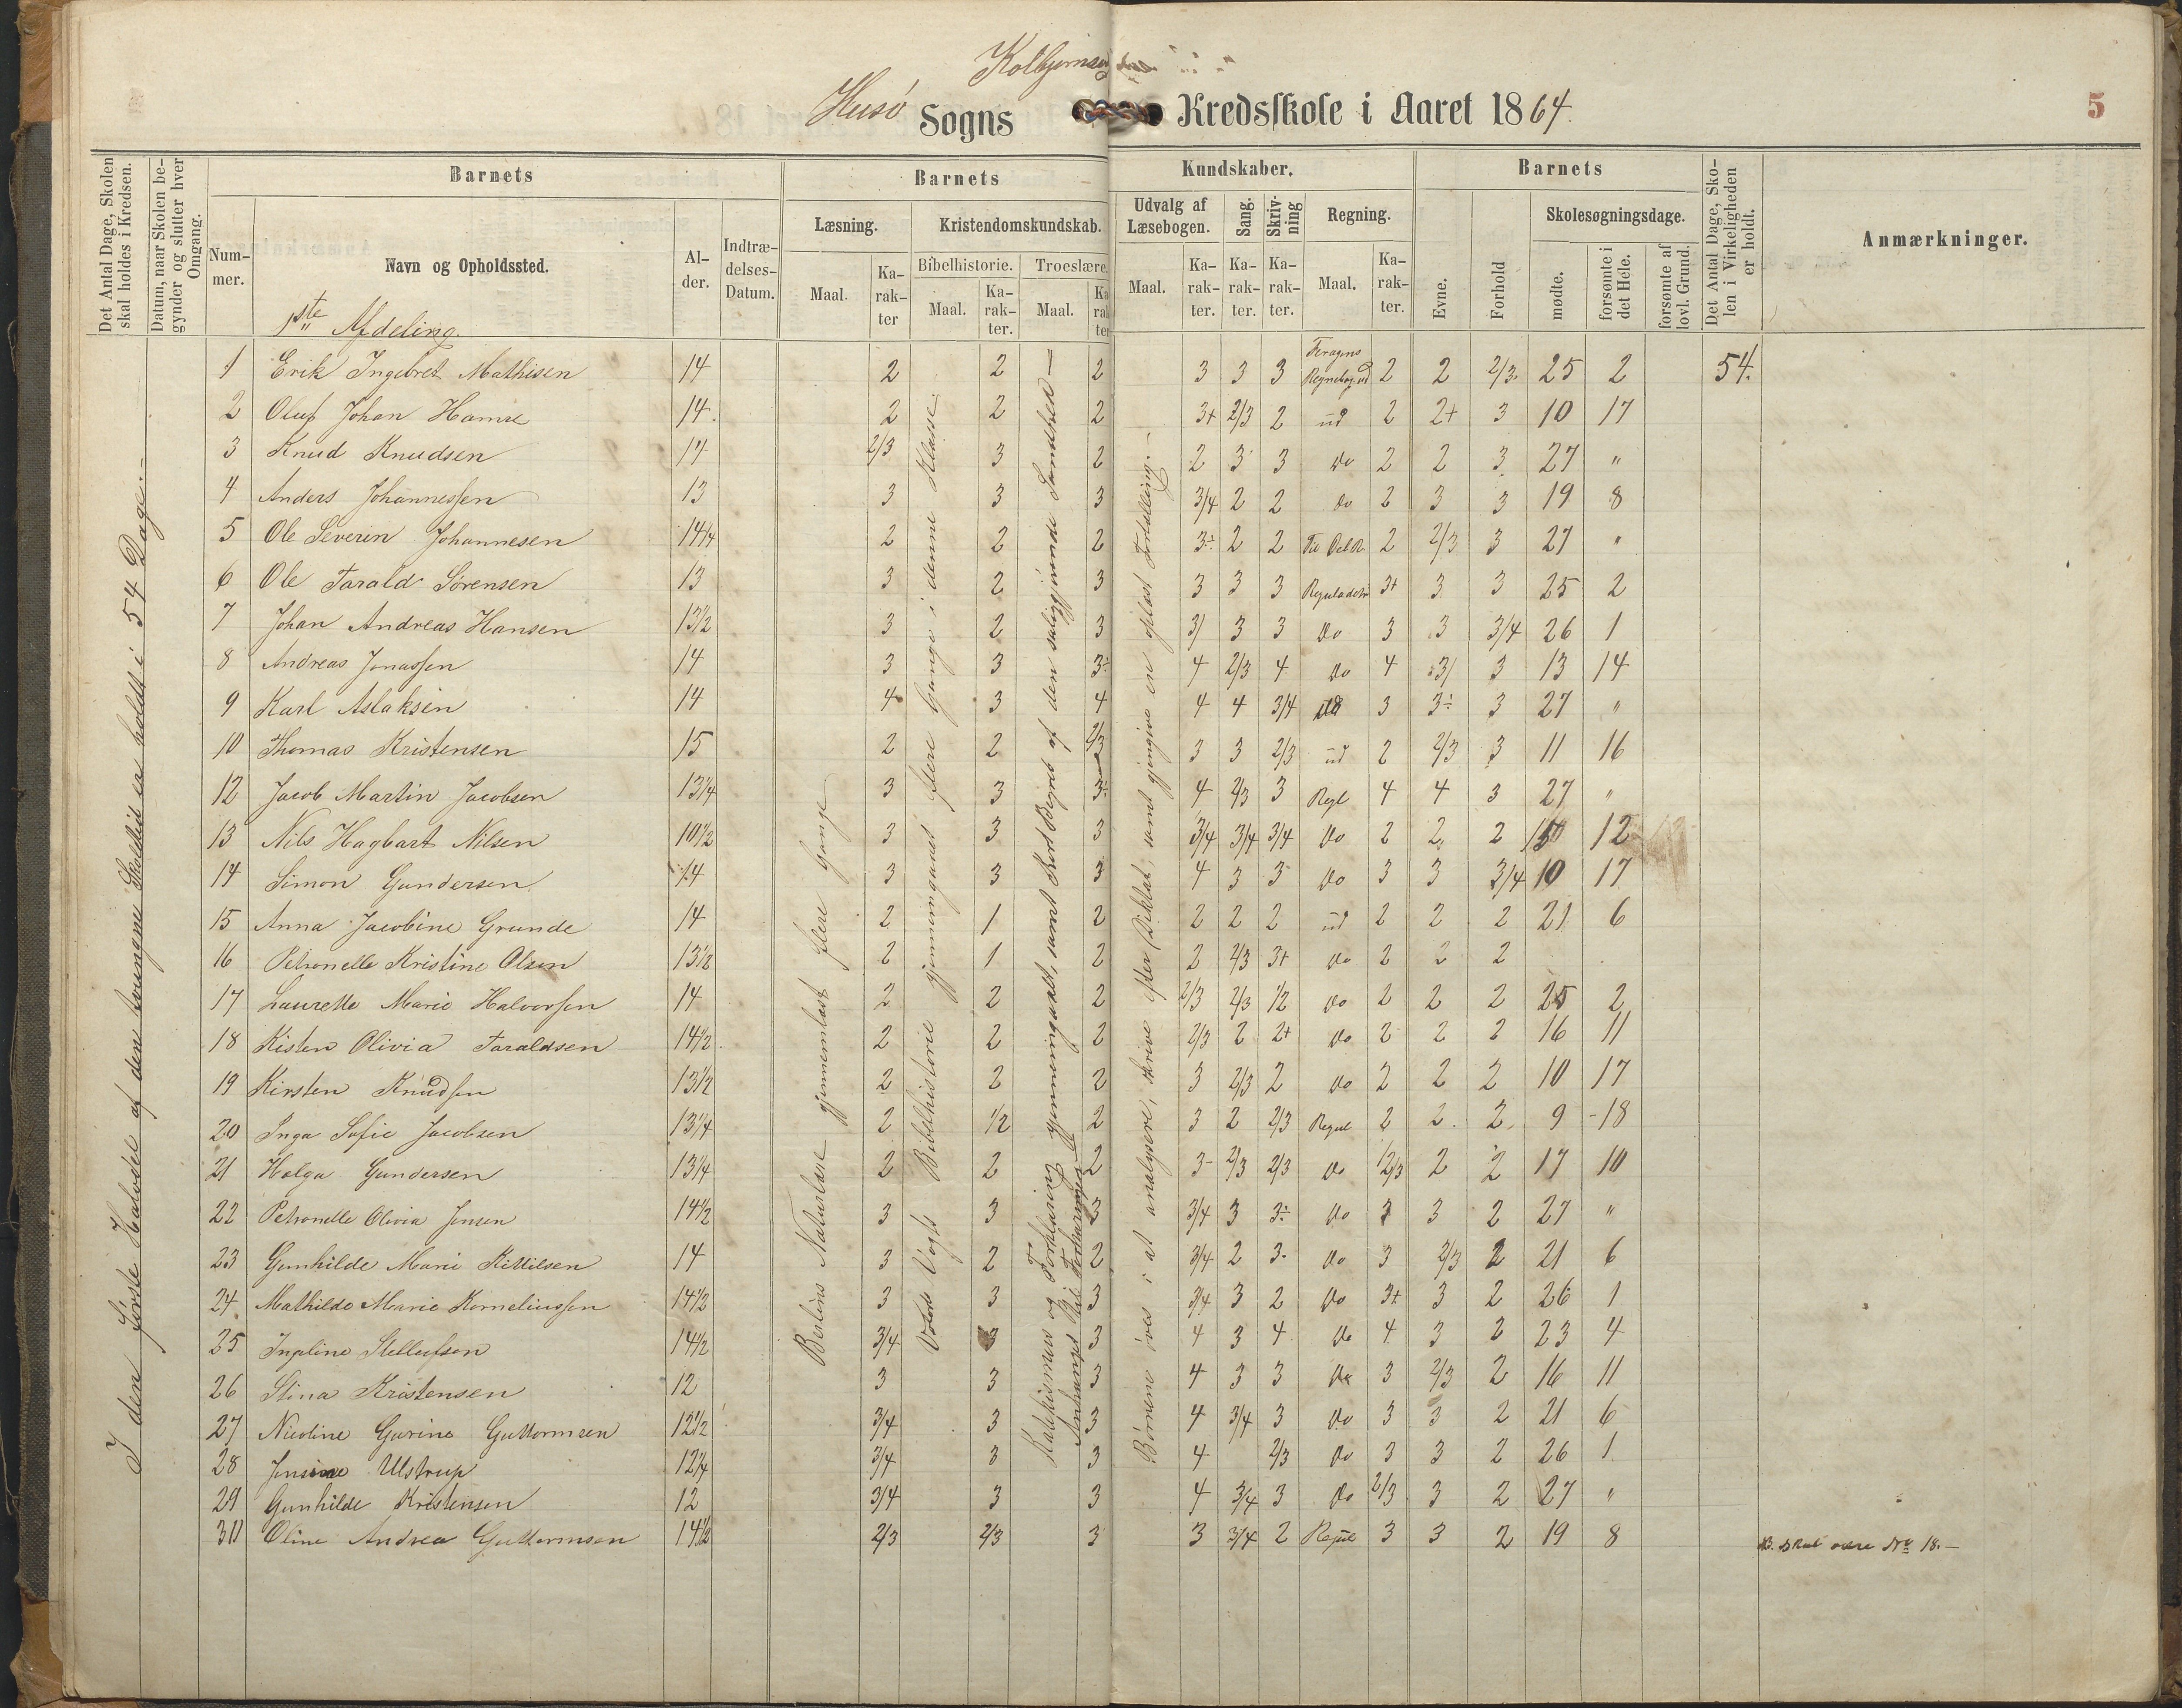 Kolbjørns
Husö Sogns Kredsskole i Aaret 1864.
5
Det Antal Dage, Skolen skal holdes i Kredsen.
Datum, naar Skolen begynder og slutter hver Omgang.
Barnets
Nummer.
Navn og Opholdssted.
Alder.
Indtrædelses-Datum.
Barnets
Kundskaber.
Læsning.
Maal.
Karakter
Kristendomskundskab.
Bibelhistorie.
Maal.
Karakter.
Troeslære.
Maal.
Udvalg af Læsebogen.
Maal.
Karakter.
Sang.
Karakter.
Skrivning
Karakter.
Regning.
Maal.
Karakter.
Barnets
Evne.
Forhold
Skolesøgningsdage.
mødte.
forsømte i det Hele.
forsømte af lovl. Grund.
Det Antal Dage, Skolen i Virkeligheden er holdt.
Anmærkninger.
1ste Afdeling.
1 Erik Ingebret Mathisen 14 2 2 2 3 3 3 Regnebog ud 2 2 2/3 25 2 54.
2 Oluf Johan Hamre 14. 2 2 2 3+ 2/3 2 ud 2 2+ 3 10 17
3 Knud Knudsen 14 2/3 3 2 2 3 3 do 2 2 3 27 "
4 Anders Johannessen 13 3 3 3 3/4 2 2 do 2 3 3 19 8
5 Ole Severin Johannesen 14 1/4 2 2 2 3÷ 2 2 2 2/3 3 27 "
6 Ole Tarald Sörensen 13 3 2 3 3 3 3 3+ 3 3 25 2
7 Johan Andreas Hansen 13 1/2 3 2 3 3/ 3 3 do 3 3 3/4 26 1
8 Andreas Jonassen 14 3 3 3÷ 4 2/3 4 do 4 3/ 3 13 14
9 Karl Aslaksen 14 4 3 4 4 4 3/4 3 3÷ 3 27 "
10 Thomas Kristensen 15 2 2 2/3 3 3 2/3 ud 2 2/3 3 11 16
12 Jacob Martin Jacobsen 13 1/4 3 3 3÷ 4 2/3 3 Regl 4 4 3 27 "
13 Nils Hagbart Nilsen 10 1/2 3 3 3 3/4 3/4 3/4 do 2 2 2 15 12
14 Simon Gundersen 14 3 3 3 4 3 3 do 3 3 3/4 10 17
15 Anna Jacobine Grunde 14 2 1 2 2 2 2 ud 2 2 2 21 6
16 Petronelle Kristine Olsen 13 1/2 2 1 2 2 2/3 3+ do 2 2 2
17 Laurette Marie Halvorsen 14 2 2 2 2/3 2/3 1/2 do 2 2 2 25 2
18 Kisten Olivia Taraldsen 14 1/2 2 2 2 2/3 2 2+ do 2 2 2 16 11
19 Kirsten Knudsen 13 1/2 2 2 2 3 2/3 2 do 2 2 2 10 17
20 Inga Sofie Jacobsen 13 1/4 2 1/2 2 3 2 2/3 Regul 2 2 2 9 18
21 Helga Gundersen 13 1/4 2 2 2 3- 2/3 2/3 do 2/3 2 2 17 10
22 Petronelle Olivia Jensen 14 1/2 3 3 3 3/4 3 3÷ do 3 3 2 27 "
23 Gunhilde Marie Kittilsen 14 3 2 2 3/4 2 3 do 3 2/3 2 21 6
24 Mathilde Marie Korneliussen 14 1/2 3 3 3 3/4 3 2 do 3+ 3 2 26 1
25 Ingline Stellefsen 14 1/2 3/4 3 3 4 3 4 do 4 3 2 23 4
26 Stina Kristensen 12 3 3 3 4 3 3 do 3 2/3 2 16 11
27 Nicoline Gurine Guttormsen 12 1/2 3/4 3 3 4 3/4 3 do 3 3 2 21 6
28 Jensine Ulstrup 12 1/4 3/4 3 3 4 2/3 do 3 3 2 26 1
29 Gunhilde Kristensen 12 3/4 3 3 4 3/4 3 do 2/3 3 2 27 "
30 Oline Andrea Guttormsen 14 1/2 2/3 2/3 3 3 3/4 2 Regul 3 3 2 19 8 NB. skal være No 18.—
I den første Halvdel af den tvungne Skoletid er holdt i 54 Dage.—
Berlins Naturlære gjennemlæst flere Gange
Vogts Bibelhistorie gjennemgaaet flere Gange i denne Klasse.
Katekismus og Forklaring gjennemgaaet, samt kort Begreb af den saliggjørende Sandhed —
Børnene øves i at analysere, skrive efter Diktat, samt gjengive en oplæst Fortælling.—